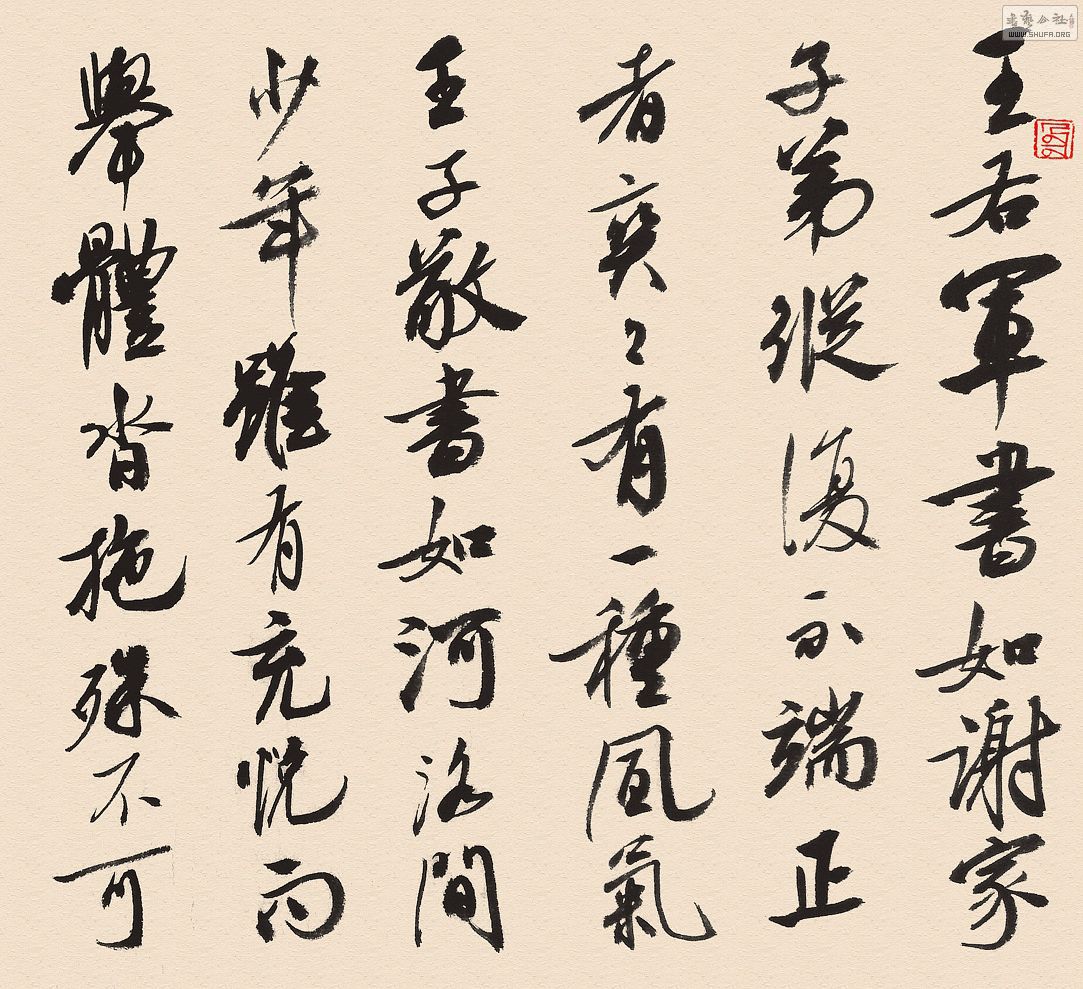 王右軍書如謝家
子弟縱復不端正
者奕々有一種風氣
王子敬書如河洛間
少年雖有充悦而
舉體沓拖殊不可
書藝公社
WWW.SHUFA.ORG